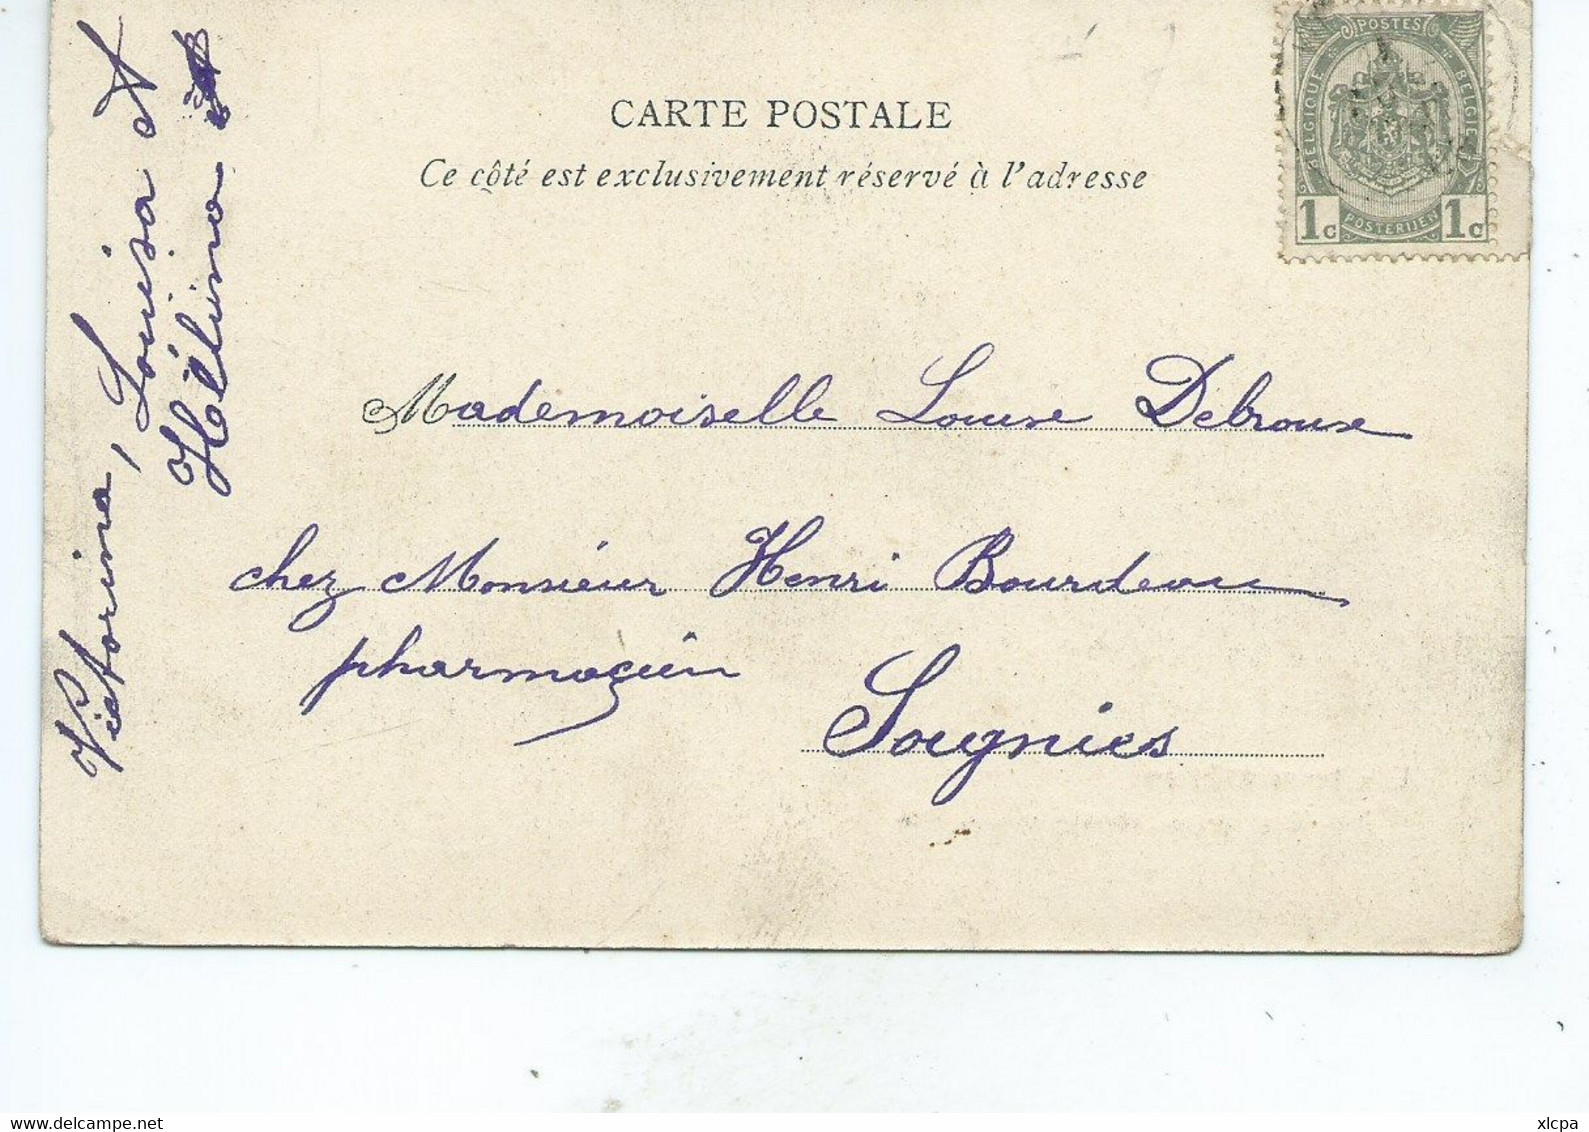 CARTE POSTALE
Ce côté est exclusivement réservé à l'adresse
POSTES
BELGIQUE
BELGIË
1c POSTERIJEN 1c
Victorine, Louisa
Hélina
Mademoiselle Louise Debroux
chez Monsieur Henri Bourdeau
pharmacien
Soignies
delcampe.net
xlcpa